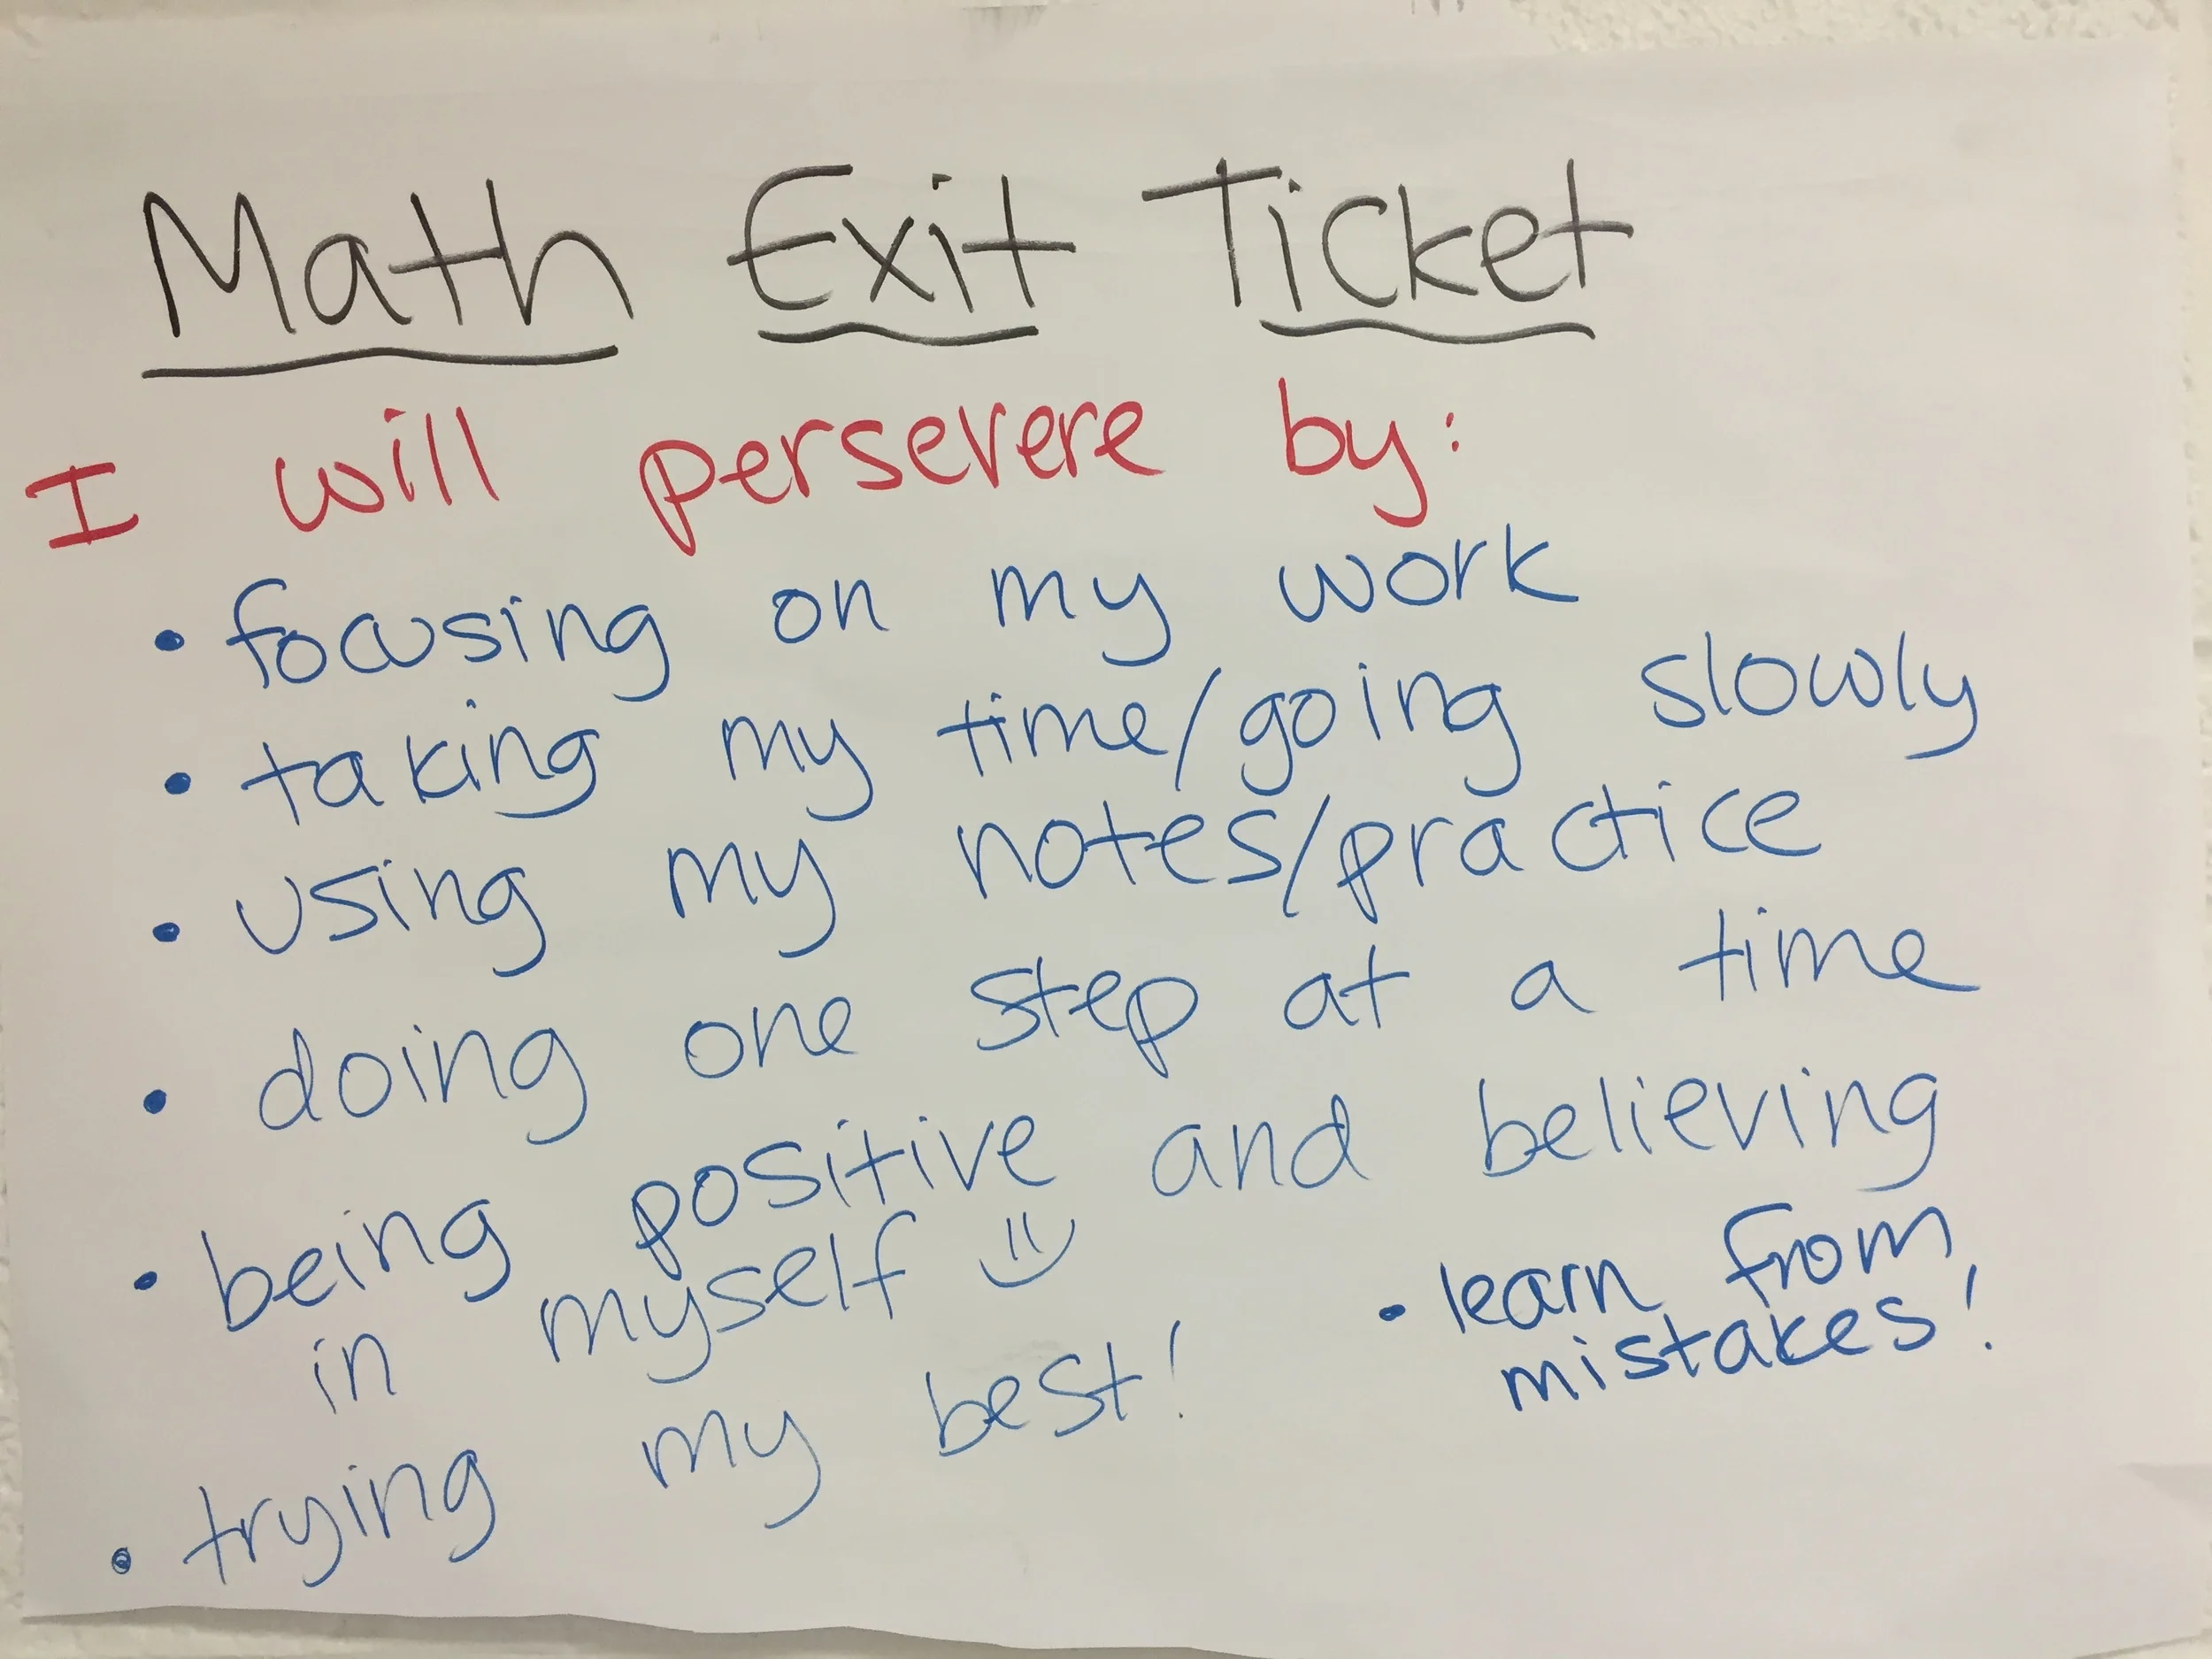 Math Exit Ticket
I will persevere by:
• focusing on my work
• taking my time/going slowly
• using my notes/practice
• doing one step at a time
• being positive and believing
in myself
• trying my best!
• learn from
mistakes!